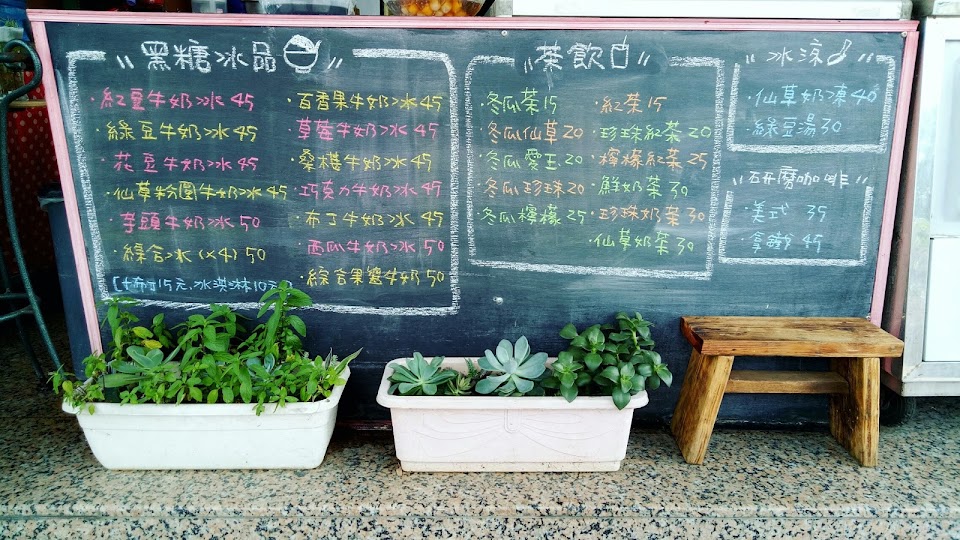 黑糖冰品
·紅豆牛奶冰 45
·綠豆牛奶冰 45
·花豆牛奶冰 45
·仙草粉圓牛奶冰 45
·芋頭牛奶冰 50
·綜合冰(x4) 50
[+布丁15元.冰淇淋10元
·百香果牛奶冰 45
·草莓牛奶冰 45
·桑椹牛奶冰 45
·巧克力牛奶冰 45
·布丁牛奶冰 45
·西瓜牛奶冰 50
·綜合果醬牛奶 50
茶飲
·冬瓜茶 15
·冬瓜仙草 20
·冬瓜愛玉 20
·冬瓜珍珠 20
·冬瓜檸檬 25
·紅茶 15
·珍珠紅茶 20
·檸檬紅茶 25
·鮮奶茶 30
·珍珠奶茶 30
·仙草奶茶 30
冰涼
·仙草奶凍 40
·綠豆湯 30
研磨咖啡
·美式 35
·拿鐵 45